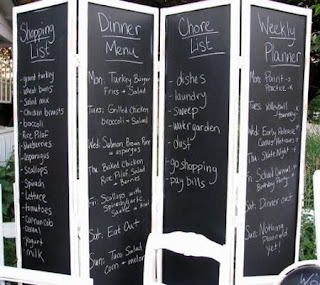 Shopping
List
- ground turkey
- wheat buns
- salad mix
- chicken breasts
- broccoli
- Rice Pilaf
- blueberries
- asparagus
- scallops
- spinach
- lettuce
- tomatoes
- corn on cob
- cereal
- yogurt
- milk
Dinner
Menu
Mon: Turkey Burger
Fries + Salad
Tues: Grilled Chicken
Broccoli + Salad
Wed: Salmon
+ asparagus
Th: Baked Chicken
Rice Pilaf, Salad
+ Berries
Fri: Scallops with
Spinach/garlic
Sat: Eat Out
Sun: Taco Salad
corn + melon
Chore
List
- dishes
- laundry
- sweep
- water garden
- dust
- go shopping
- pay bills
Weekly
Planner
Mon:
Practice
Tues: Volleyball
Wed: Early Release
Th: Skate Night
Fri: School Carnival
Birthday
Sat: Dinner out
Sun: Nothing
Planned
yet!